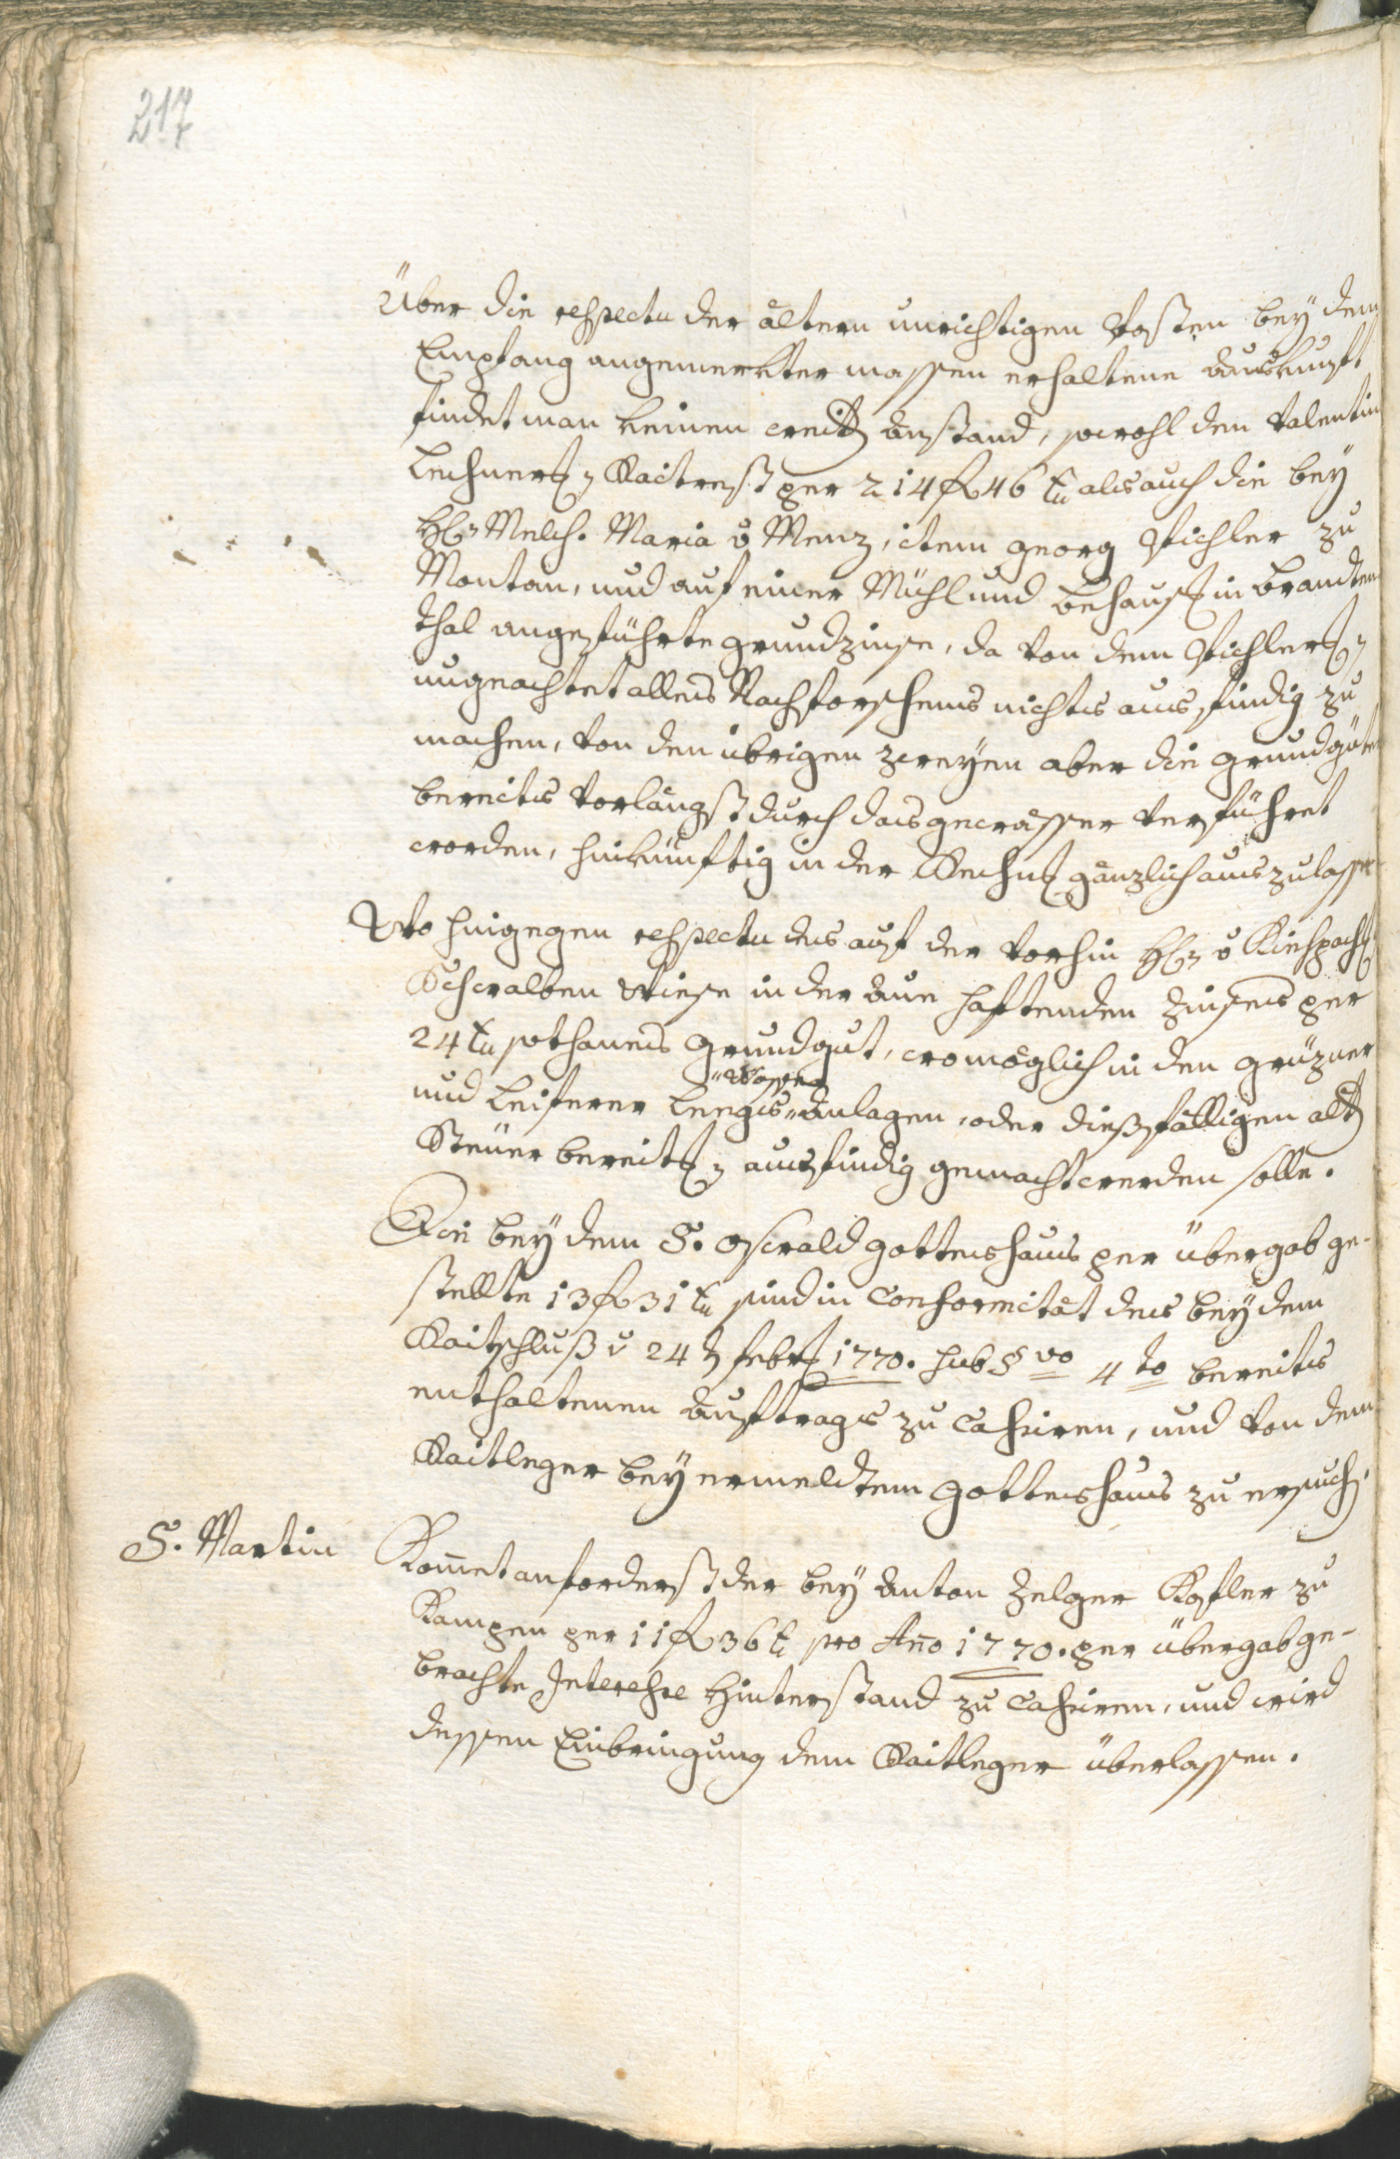 217
Über die respectu der ältern unrichtigen Posten bey dem
Empfang angemerkter massen erhaltene Auskunft
findet man keinen weith Anstand, sowohl den Valentin
Lechner Raitrest per 214 f 46 xr als auch die bey
H Melch. Maria v Menz, item Georg Pichler zu
Montan, und auf einer Mühl und Behaus in Brandten
thal angeführte Grundzinse, da von dem Pichler
ungeachtet alles Nachforschens nichts ausfindig zu
machen, von den übrigen zweyen aber die Grundgüter
bereits vorlängst durch das Gewässer verführet
worden, hinkünftig in der Rechn gänzlich auszulassen
Wo hingegen respectu des auf der vorhin H v
Wiese in der Aue haftenden Zinses per
24 xr sothanes Grundgut, womöglich in den Grüzner
"Wasser
und Leiferer Leegs"Anlagen, oder diesfälligen alt
Steuer bereit ausfindig gemacht werden solle.
Die bey dem S. Oswald Gotteshaus per Übergab ge-
stellte 13 f 31 xr sind in Conformität des bey dem
Raitschluß v 24 Febr 1770. sub § vo 4 to bereits
enthaltenen Auftrags zu cassiren, und von dem
Raitleger bey ermeldtem Gotteshaus zu ersuch.
S. Martin
Komet anforderst der bey Anton Zelger Kofler zu
Kampen per 11 f 36 x pro Año 1770. per Übergab ge-
brachte Interesse Hinterstand zu cassiren, und wird
dessen Einbringung dem Raitleger überlassen.